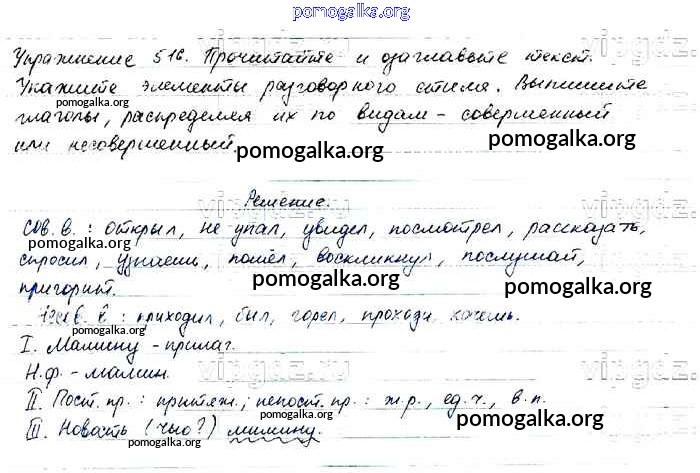 pomogalka.org
Упражнение 516. Прочитайте и озаглавьте текст.
Укажите элементы разговорного стиля. Выпишите
pomogalka.org
глаголы, распределяя их по видам – совершенный
pomogalka.org
или несовершенный.
pomogalka.org
Решение.
Сов. в.: открыл, не упал, увидел, посмотрел, рассказать,
pomogalka.org
спросил, узнаешь, пошёл, воскликнул, послушай,
pomogalka.org
пригорит.
pomogalka.org
Несов. в: приходил, был, горел, проходи, хочешь.
pomogalka.org
I. Мамину – прилаг.
Н.ф – мамин.
pomogalka.org
II. Пост. пр.: притяж., непост. пр.: ж.р., ед.ч., в.п.
pomogalka.org
III. Новость (чью?) мамину.
pomogalka.org